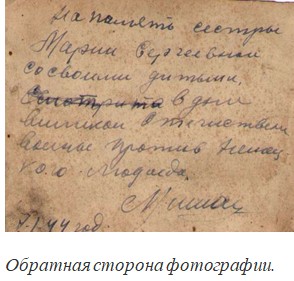 На память сестры
Марии Сергеевной
со своими дитьми.
Смотрите в дни
великой Отечествен
воины против немец
кого людоеда.
Миша
7/I 44 год
Обратная сторона фотографии.